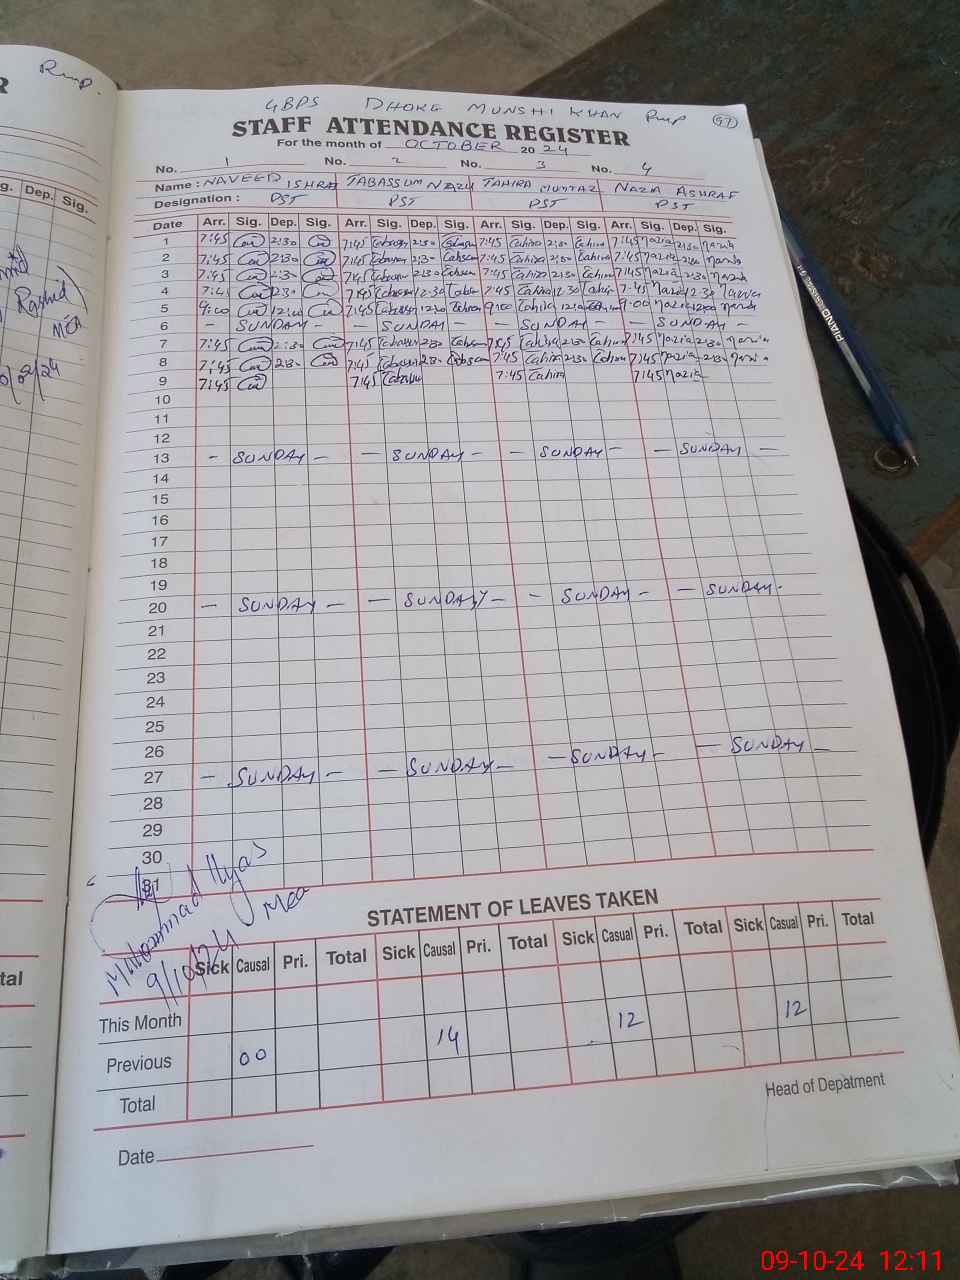 Rmp.
GBPS DHOKE MUNSHI KHAN Rmp
STAFF ATTENDANCE REGISTER
For the month of OCTOBER 2024
No. 1 No. 2 No. 3 No. 4
Name : NAVEED ISHRA TABASSUM NAZU TAHIRA MUMTAZ NAZIA ASHRAF
Designation : PST PST PST PST
Date Arr. Sig. Dep. Sig. Arr. Sig. Dep. Sig. Arr. Sig. Dep. Sig. Arr. Sig. Dep. Sig.
1 7:45 2:30 7:45 2:30 7:45 Tahira 2:30 Tahira 7:45 Nazia 2:30 Nazia
2 7:45 2:30 7:45 2:30 7:45 Tahira 2:30 Tahira 7:45 Nazia 2:30 Nazia
3 7:45 2:30 7:45 2:30 7:45 Tahira 2:30 Tahira 7:45 Nazia 2:30 Nazia
4 7:45 7:45 12:30 7:45 Tahira 12:30 7:45 Nazia 12:30 Nazia
5 9:00 12:00 7:45 9:00 Tahira 12:00 9:00 Nazia 12:00 Nazia
6 - SUNDAY - - SUNDAY - - SUNDAY - - SUNDAY -
7 7:45 2:30 7:45 2:30 7:45 Tahira 2:30 Tahira 7:45 Nazia 2:30 Nazia
8 7:45 2:30 7:45 2:30 7:45 Tahira 2:30 Tahira 7:45 Nazia 2:30 Nazia
9 7:45 7:45 7:45 Tahira 7:45 Nazia
10
11
12
13 - SUNDAY - - SUNDAY - - SUNDAY - - SUNDAY -
14
15
16
17
18
19
20 - SUNDAY - - SUNDAY - - SUNDAY - - SUNDAY -
21
22
23
24
25
26
27 - SUNDAY - - SUNDAY - - SUNDAY - - SUNDAY -
28
29
30
31
Muhammad Ilyas
MEA
9/10/24
STATEMENT OF LEAVES TAKEN
Sick Causal Pri. Total Sick Causal Pri. Total Sick Casual Pri. Total Sick Casual Pri. Total
This Month
Previous 00 14 12 12
Total
Head of Depatment
Date
g. Dep. Sig.
Rashid)
MEA
tal
PIANO
09-10-24 12:11